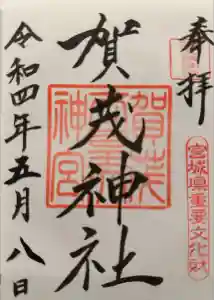 奉拝
宮城県重要文化財
賀茂神社
賀茂神宮
令和四年五月八日